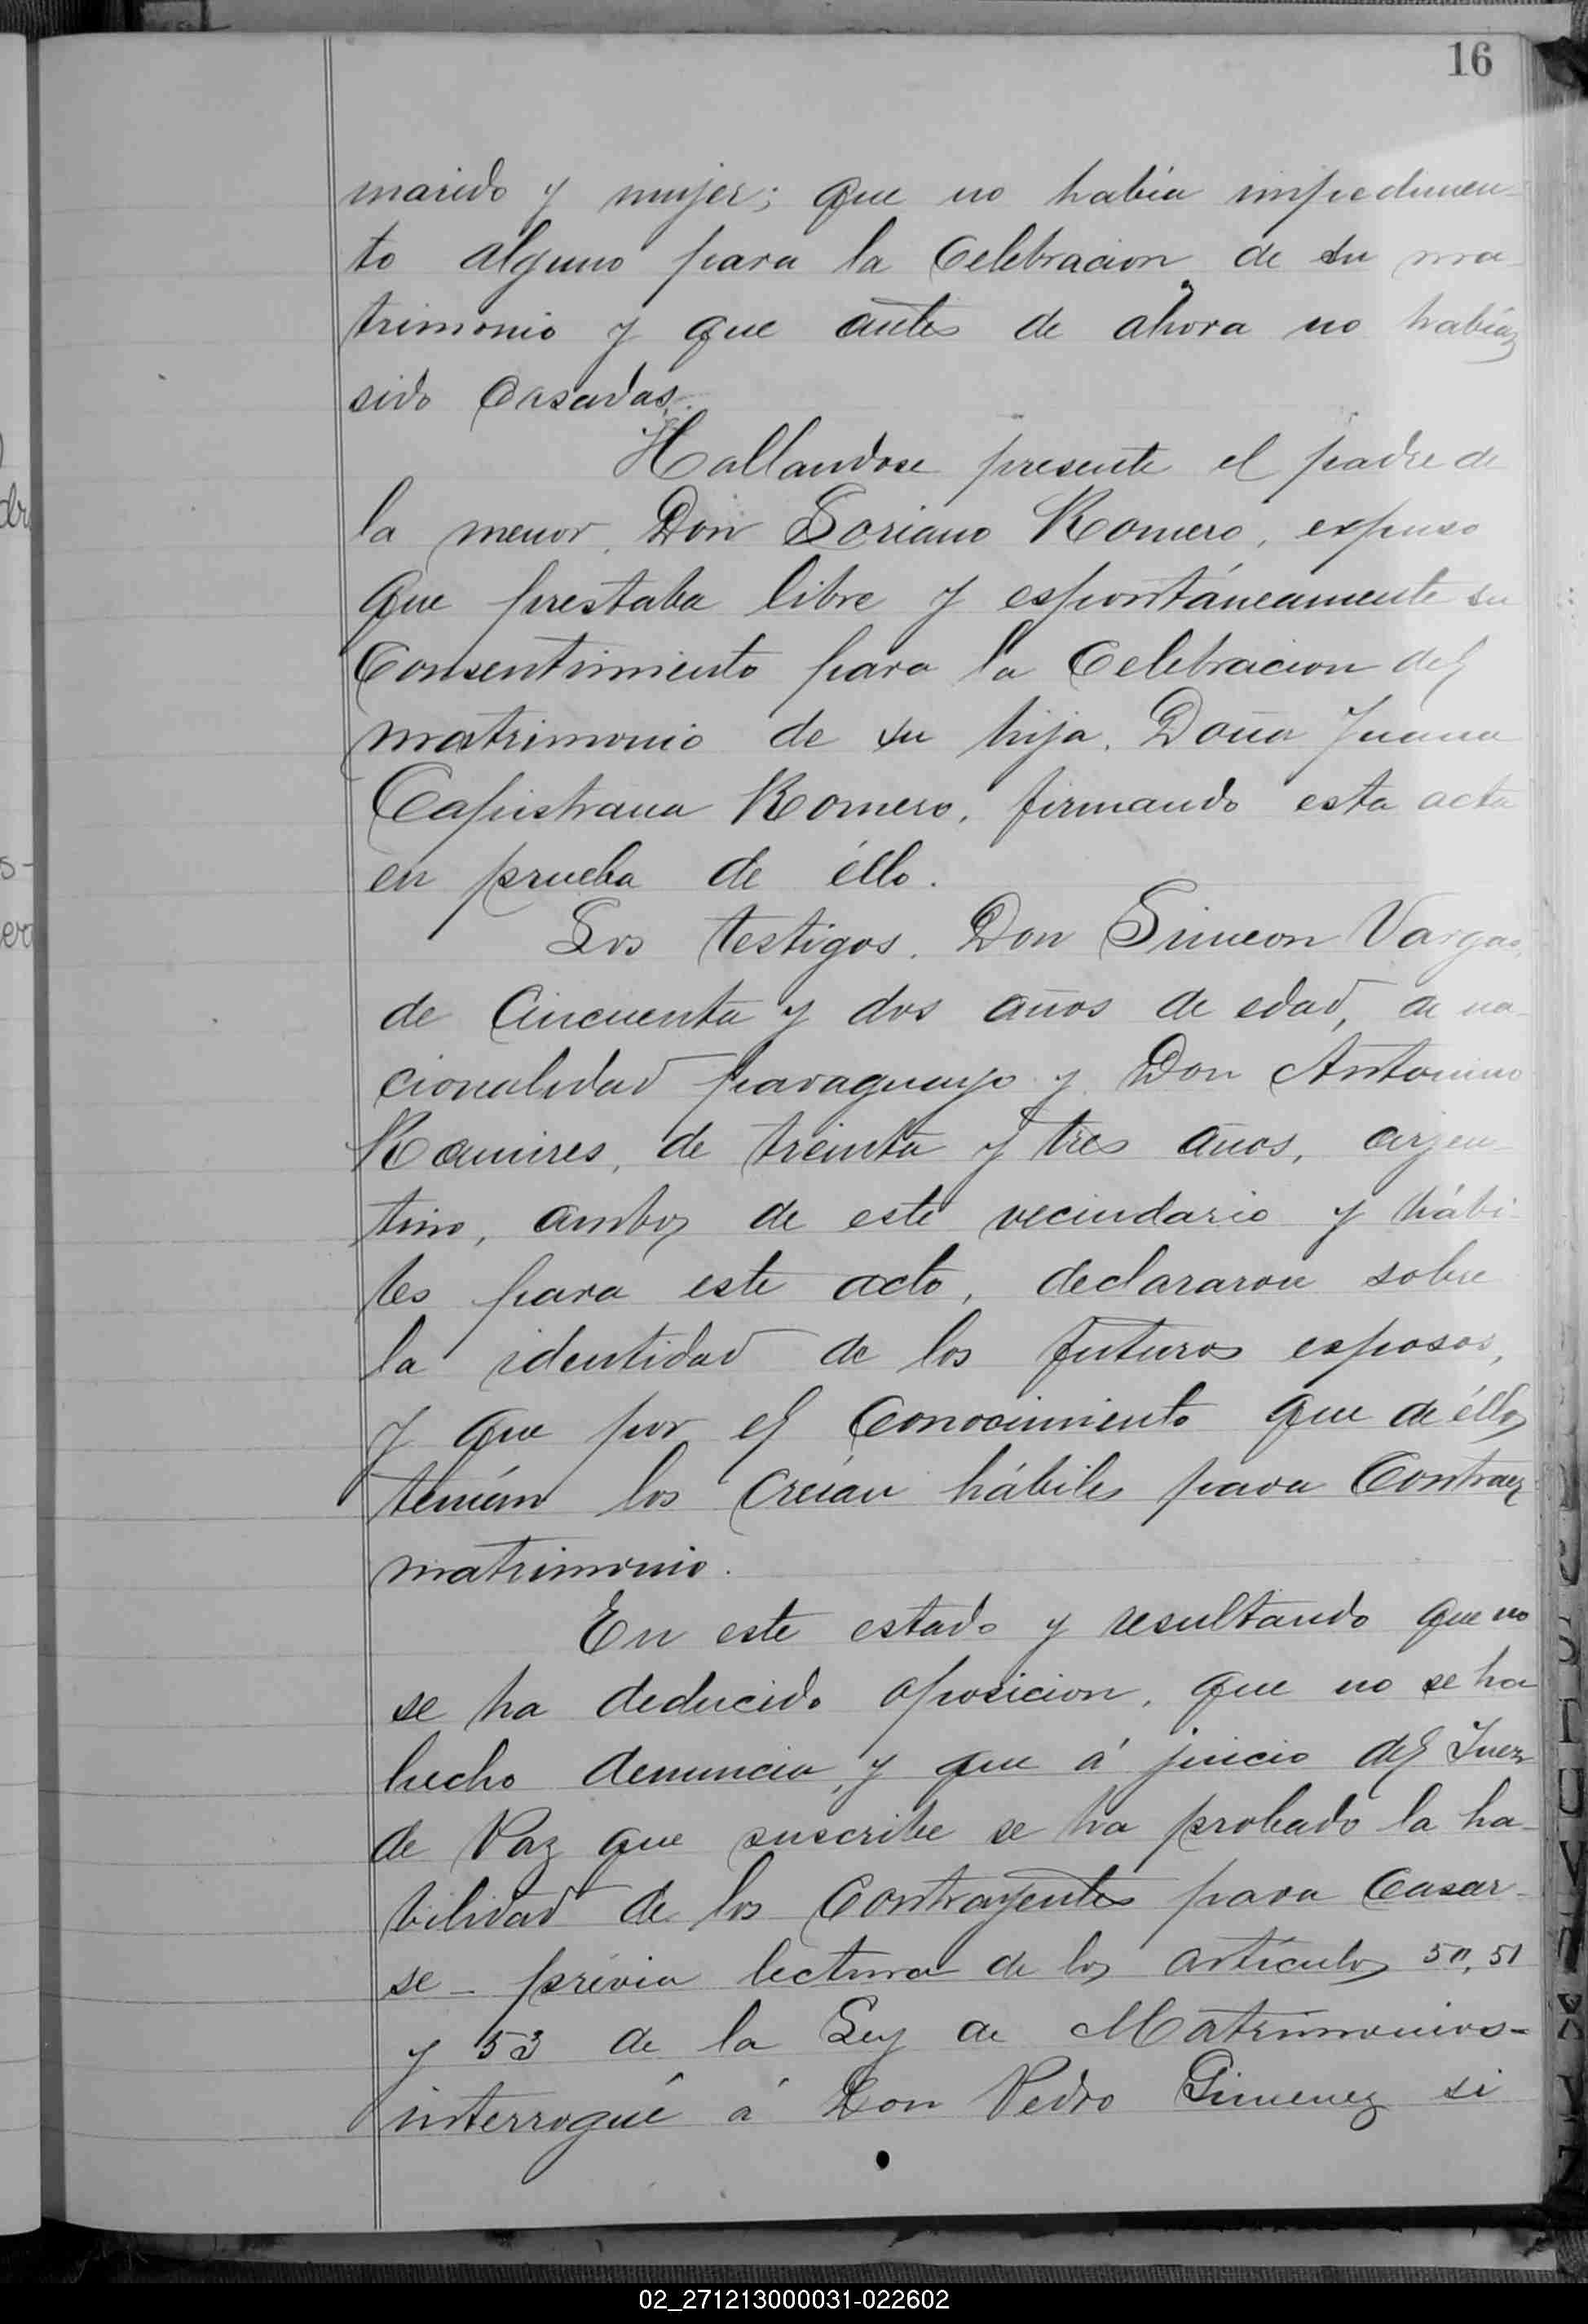 16
marido y mujer; que no había impedimen-
to alguno para la Celebracion de su ma-
trimonio y que antes de ahora no habían
sido Casadas.
Hallandose presente el padre de
la menor, Don Soriano Romero, expuso
que prestaba libre y espontáneamente su
Consentimiento para la Celebracion del
matrimonio de su hija, Doña Juana
Capistrana Romero, firmando esta acta
en prueba de éllo.
Los testigos, Don Simeon Vargas,
de Cincuenta y dos años de edad, de na-
cionalidad paraguayo y Don Antonino
Ramires, de treinta y tres años, arjen-
tino, ambos de este vecindario y hábi-
les para este acto, declararon sobre
la identidad de los futuros esposos,
y que por el Conocimiento que de éllos
tenían los creían hábiles para Contraer
matrimonio.
En este estado y resultando que no
se ha deducido oposicion, que no se ha
hecho denuncia, y que á juicio del Juez
de Paz que suscribe se ha probado la ha-
bilidad de los Contrayentes para Casar-
se - prévia lectura de los artículos 50, 51
y 53 de la Ley de Matrimonios-
interrogué á Don Pedro Gimenez si
02_271213000031-022602